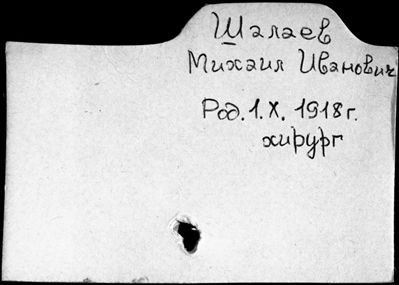 Шалаев
Михаил Иванович
Род. 1. X. 1918 г.
хирург